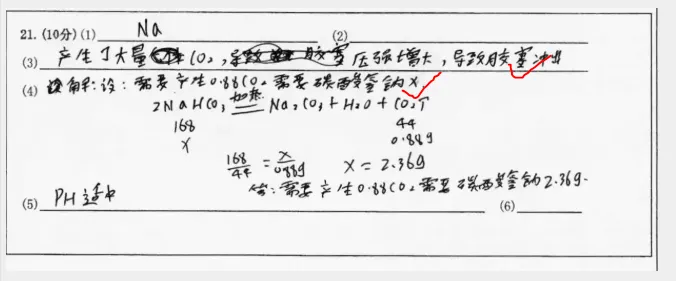 21. (10分) (1) Na (2)
(3) 产生了大量CO₂,导致胶塞压强增大,导致胶塞冲出
(4) 解:设:需要产生0.88CO₂需要碳酸氢钠X
2NaHCO₃ 加热 Na₂CO₃+H₂O+CO₂↑
168 44
X 0.88g
168/44=X/0.88g X=2.36g
答:需要产生0.88CO₂需要碳酸氢钠2.36g.
(5) PH适中 (6)